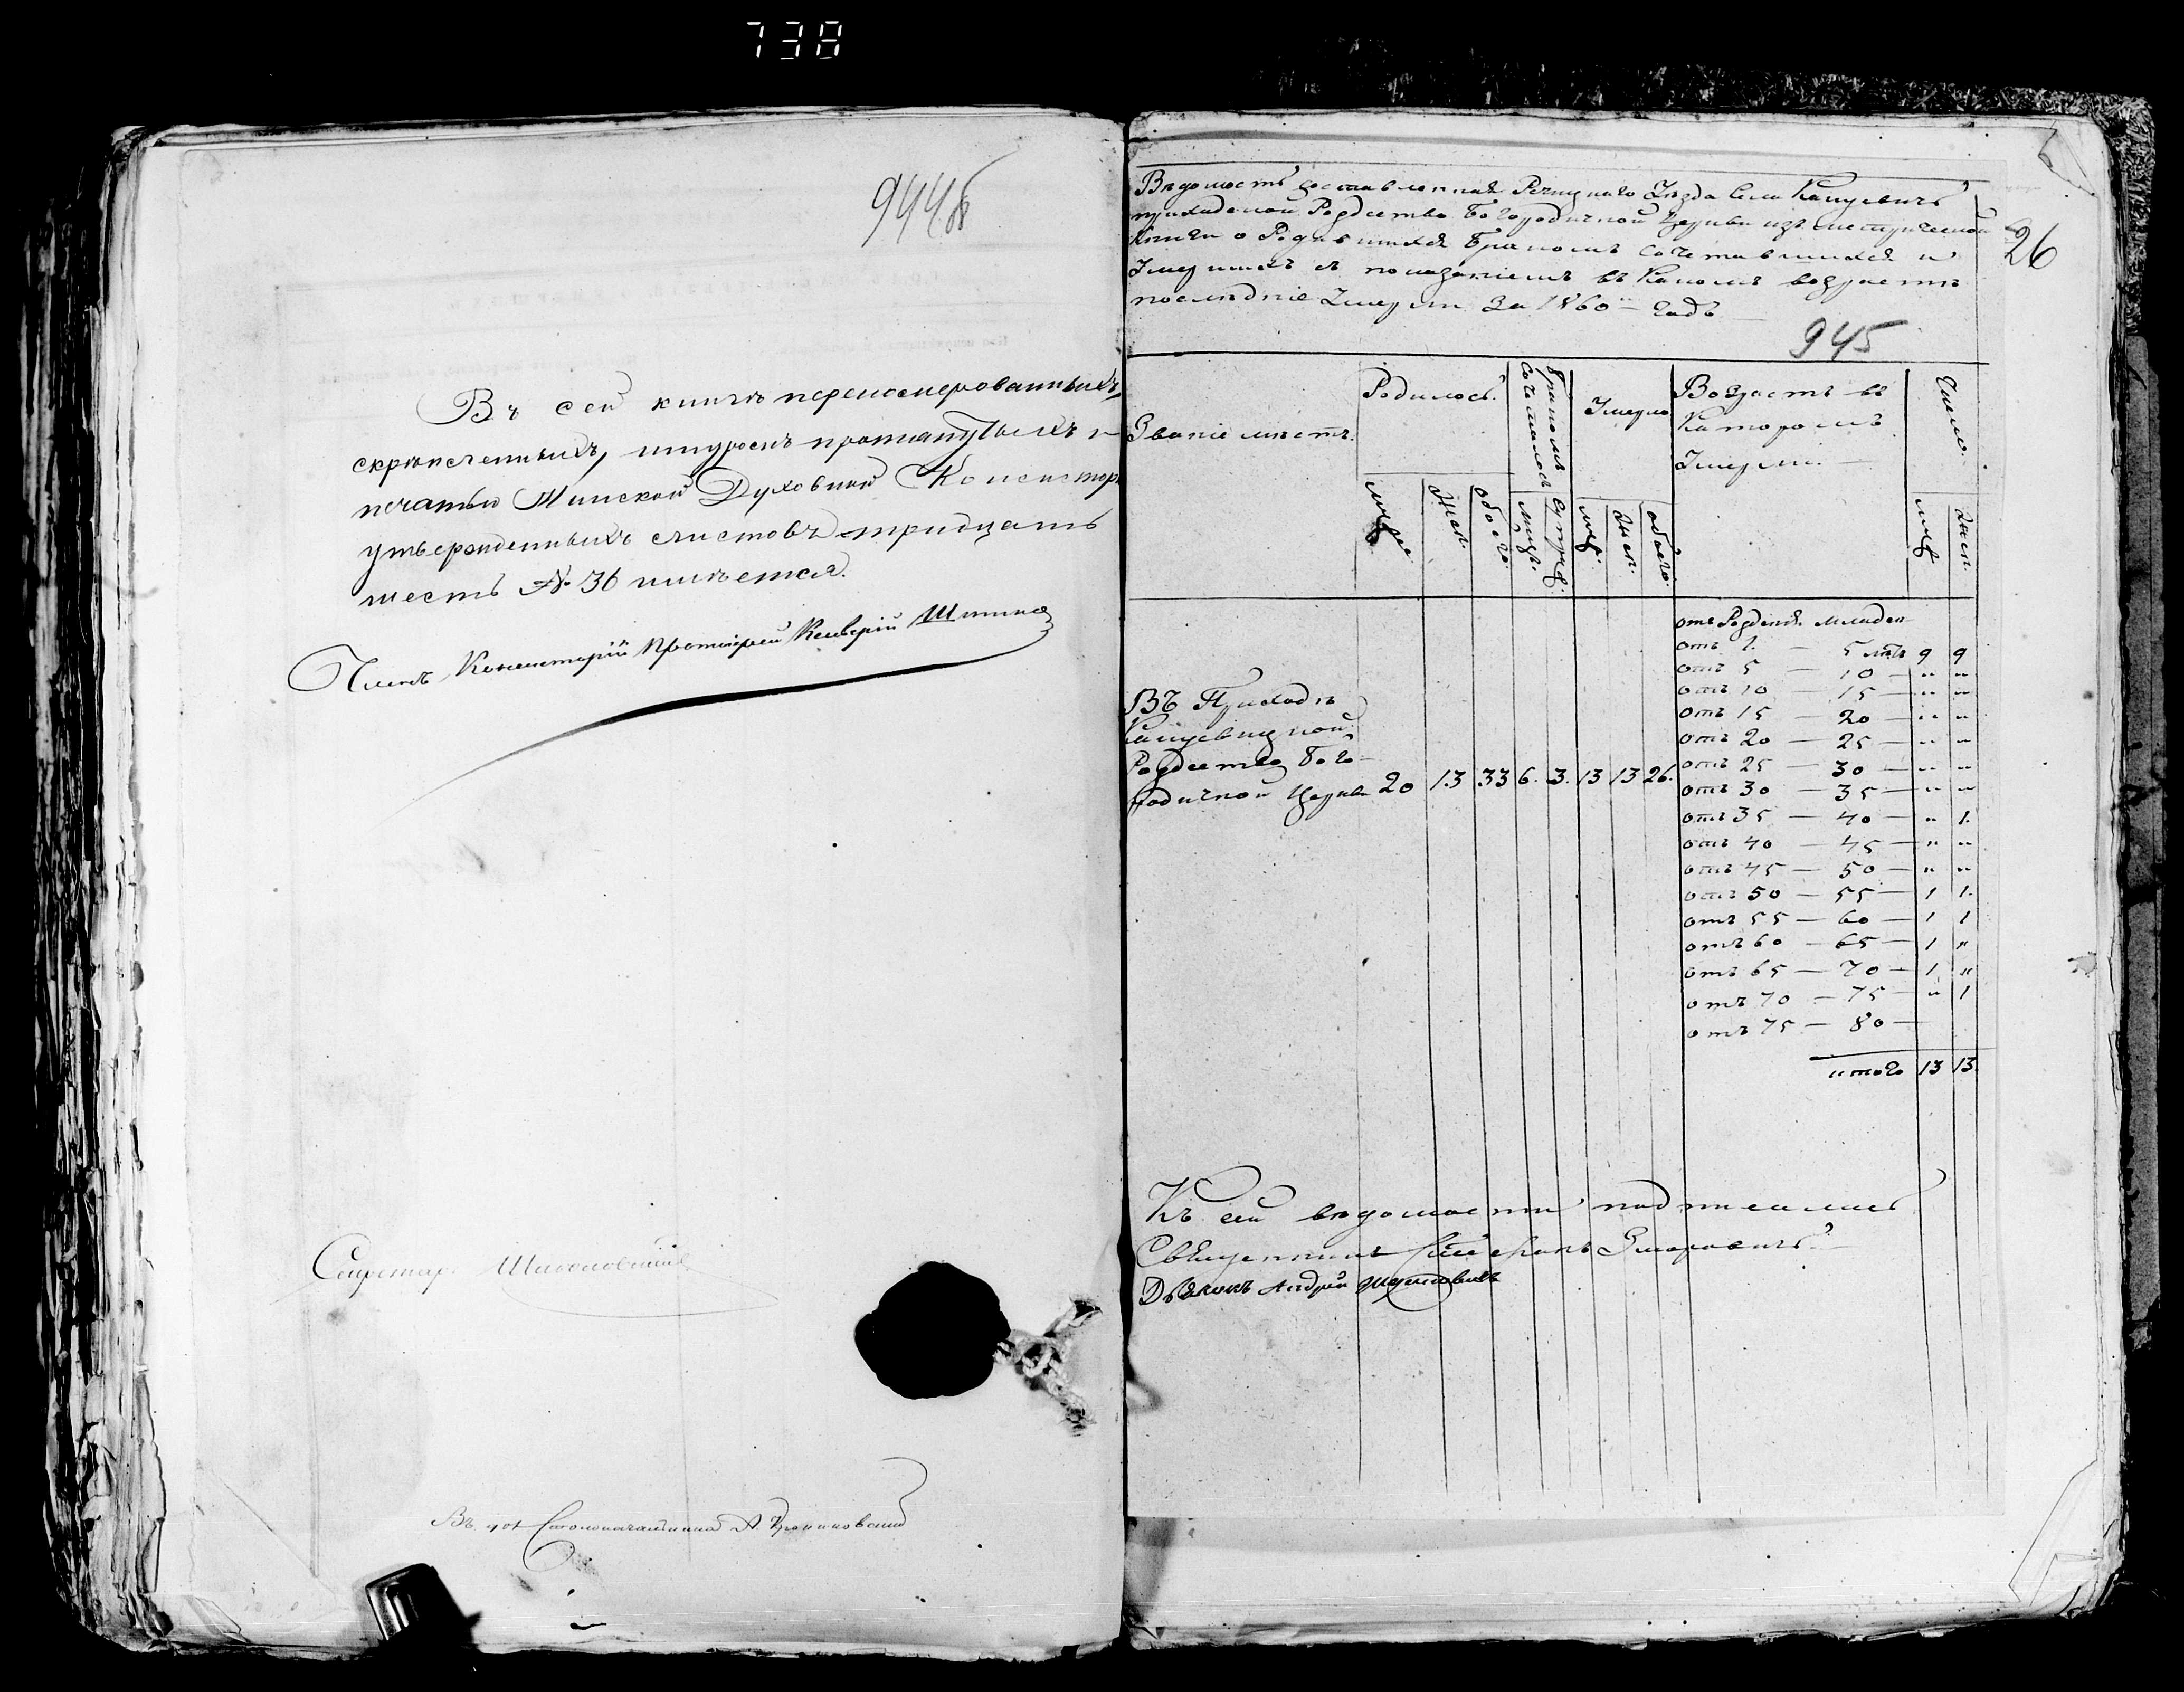 738
944об
Въ сей книгѣ перенумерованныхъ,
скрѣпленныхъ, шнуромъ протянутыхъ и
печатью Минской Духовной Консистор
утвержденныхъ листовъ тридцать
шесть № 36 имѣется.
Членъ Консисторіи Протоіерей
Секретарь
Столоначальника
26
Вѣдомость составленная Рѣчицкаго Уѣзда Села Кацуевичъ
приходской Рождество Богородичной Церкви изъ метрической
Книги о Родившихся Бракомъ Сочетавшихся и
Умершихъ съ показаніемъ въ Какомъ возрастѣ
послѣдніе Умерли За 1860 годъ
945
Званіе мѣстъ.
Родилось.
Бракомъ Сочеталось
Умерло
Возрастъ въ
Каторомъ
Умерли.
Число.
муж жен. обоего.
муж. жен. обоего.
муж жен.
отъ Рожденія Младен
отъ 1. — 5 лѣтъ 9 9
отъ 5 — 10 — " "
отъ 10 — 15 — " "
отъ 15 — 20 — " "
отъ 20 — 25 — " "
отъ 25 — 30 — " "
отъ 30 — 35 — " "
отъ 35 — 40 — " 1.
отъ 40 — 45 — " "
отъ 45 — 50 — " "
отъ 50 — 55 — 1 1.
отъ 55 — 60 — 1 1
отъ 60 — 65 — 1 "
отъ 65 — 70 — 1 "
отъ 70 — 75 — " 1
отъ 75 — 80 —
итого 13 13.
Въ Приходѣ
Кацуевицкой
Рождество Бого-
родичной Церкви 20 13 33 6. 3. 13 13 26.
Къ сей вѣдомости подписались
Священникъ Стефанъ
Дьяконъ Андрей